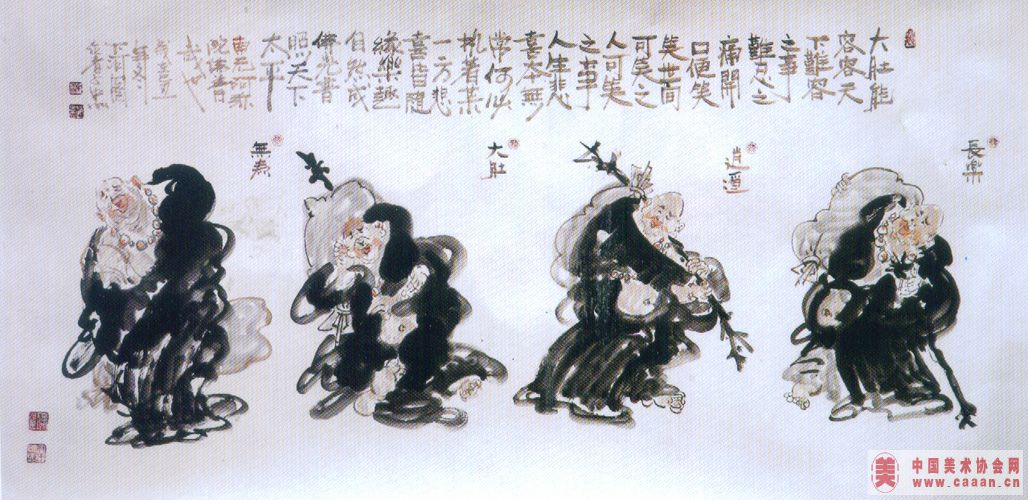 大肚能
容容天
下難容
之事
難忍之
痛開
口便笑
笑世間
可笑之
人可笑
之事
人生悲
喜本無
常何必
执着某
一方悲
喜皆隨
緣樂趣
自然成
佛光普
照天下
太平
南无阿弥
陀佛善
哉
長樂
逍遥
大肚
無
美
中国美术协会网
www.caaan.cn